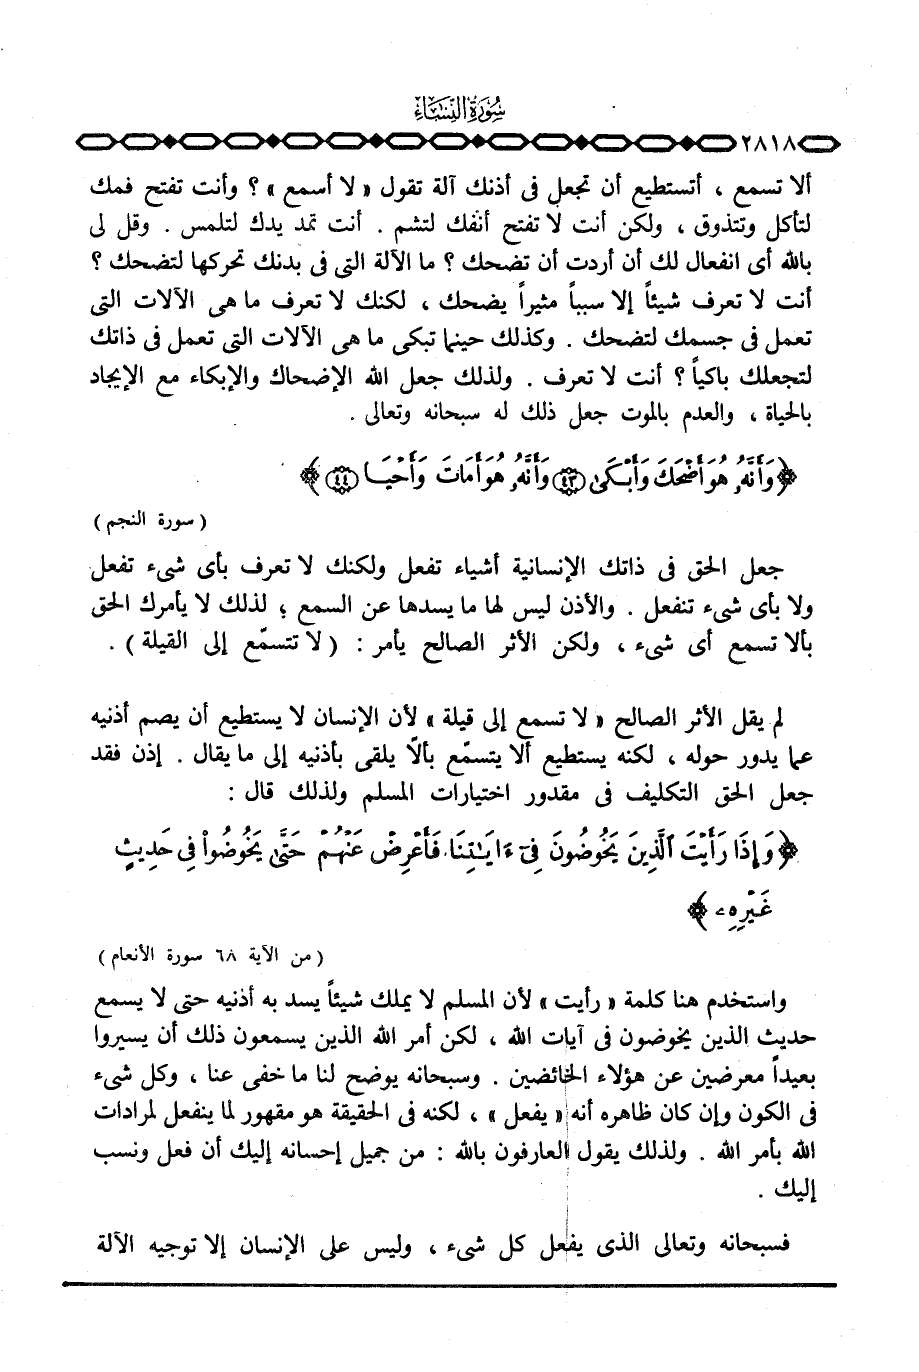 سُورَةُ النِّسَاءِ
٢٨١٨
ألا تسمع ، أتستطيع أن تجعل فى أذنك آلة تقول « لا أسمع » ؟ وأنت تفتح فمك
لتأكل وتتذوق ، ولكن أنت لا تفتح أنفك لتشم . أنت تمد يدك لتلمس . وقل لى
بالله أى انفعال لك أن أردت أن تضحك ؟ ما الآلة التى فى بدنك تحركها لتضحك ؟
أنت لا تعرف شيئاً إلا سبباً مثيراً يضحك ، لكنك لا تعرف ما هى الآلات التى
تعمل فى جسمك لتضحك . وكذلك حينما تبكى ما هى الآلات التى تعمل فى ذاتك
لتجعلك باكياً ؟ أنت لا تعرف . ولذلك جعل الله الإضحاك والإبكاء مع الإيجاد
بالحياة ، والعدم بالموت جعل ذلك له سبحانه وتعالى .
﴿ وَأَنَّهُۥ هُوَ أَضْحَكَ وَأَبْكَىٰ ﴿٤٣﴾ وَأَنَّهُۥ هُوَ أَمَاتَ وَأَحْيَا ﴿٤٤﴾ ﴾
( سورة النجم )
جعل الحق فى ذاتك الإنسانية أشياء تفعل ولكنك لا تعرف بأى شىء تفعل
ولا بأى شىء تنفعل . والأذن ليس لها ما يسدها عن السمع ؛ لذلك لا يأمرك الحق
بألا تسمع أى شىء ، ولكن الأثر الصالح يأمر : ( لا تتسمّع إلى القيلة ) .
لم يقل الأثر الصالح « لا تسمع إلى قيلة » لأن الإنسان لا يستطيع أن يصم أذنيه
عما يدور حوله ، لكنه يستطيع ألا يتسمّع بألاّ يلقى بأذنيه إلى ما يقال . إذن فقد
جعل الحق التكليف فى مقدور اختيارات المسلم ولذلك قال :
﴿ وَإِذَا رَأَيْتَ ٱلَّذِينَ يَخُوضُونَ فِىٓ ءَايَٰتِنَا فَأَعْرِضْ عَنْهُمْ حَتَّىٰ يَخُوضُوا۟ فِى حَدِيثٍ
غَيْرِهِۦ ﴾
( من الآية ٦٨ سورة الأنعام )
واستخدم هنا كلمة « رأيت » لأن المسلم لا يملك شيئاً يسد به أذنيه حتى لا يسمع
حديث الذين يخوضون فى آيات الله ، لكن أمر الله الذين يسمعون ذلك أن يسيروا
بعيداً معرضين عن هؤلاء الخائضين . وسبحانه يوضح لنا ما خفى عنا ، وكل شىء
فى الكون وإن كان ظاهره أنه « يفعل » ، لكنه فى الحقيقة هو مقهور لما ينفعل لمرادات
الله بأمر الله . ولذلك يقول العارفون بالله : من جميل إحسانه إليك أن فعل ونسب
إليك .
فسبحانه وتعالى الذى يفعل كل شىء ، وليس على الإنسان إلا توجيه الآلة